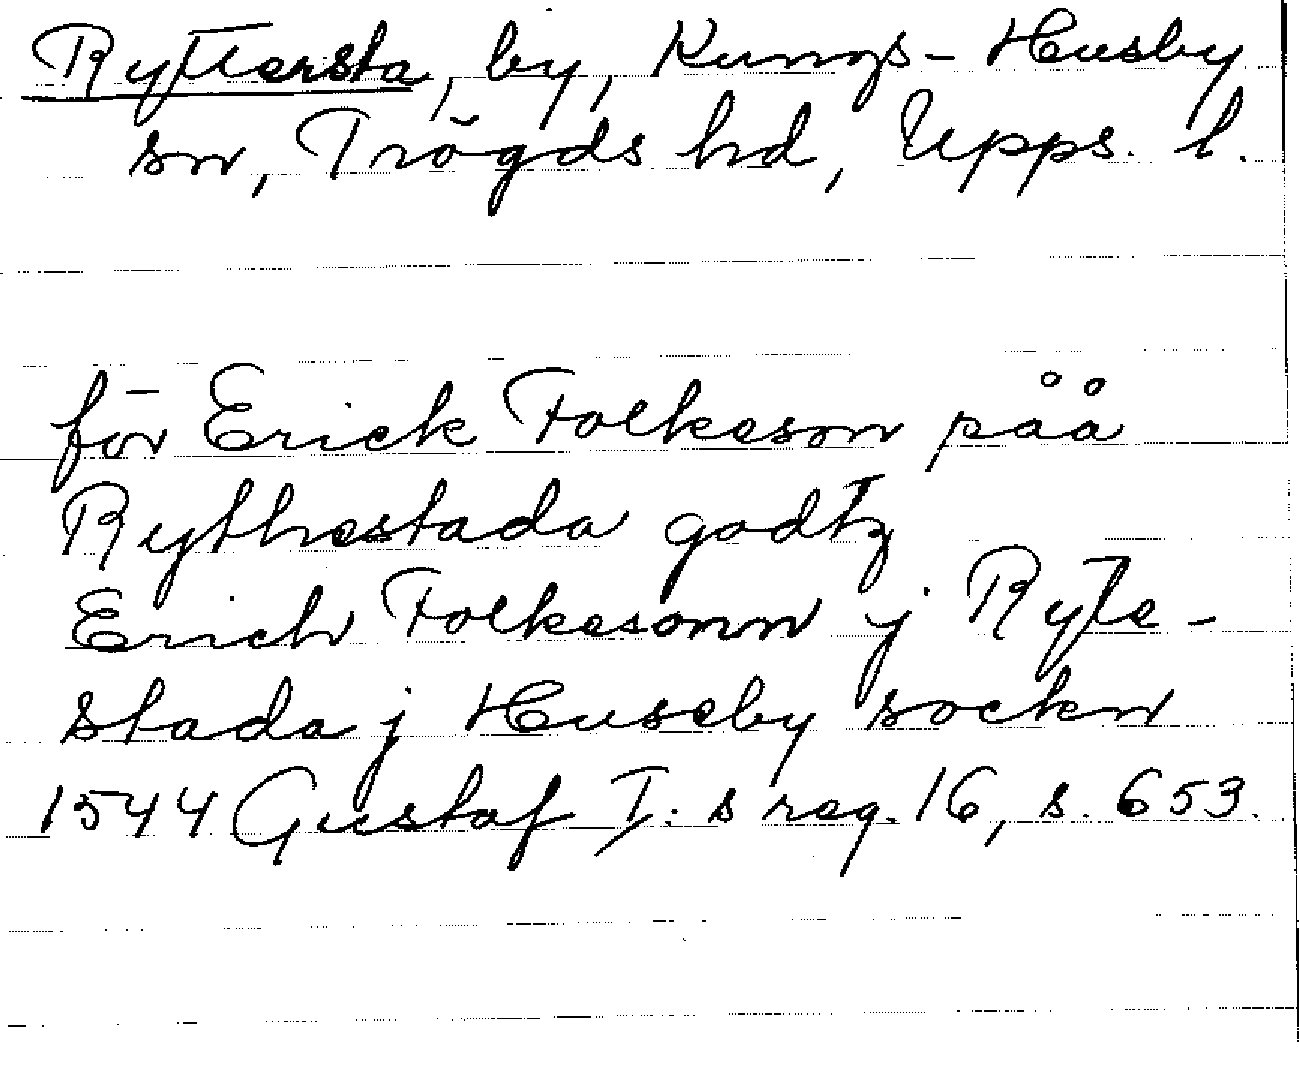 Ryttersta, by, Kungs-Husby
sn, Trögds hd, Upps. l.
för Erick Folkeson påå
Rythestada godtz
Erich Folkesonn j Ryte-
stada j Huseby sockn
1544 Gustaf I:s reg. 16, s. 653.